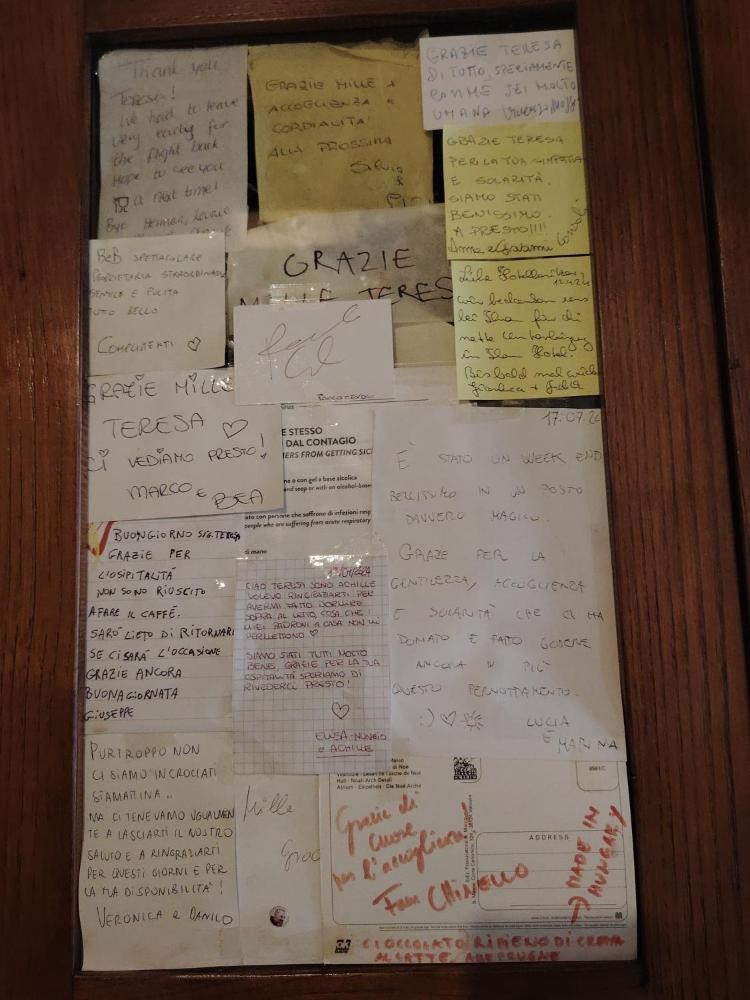 Thank you
Teresa!
We had to leave
very early for
the flight back.
Hope to see you
a next time!
Bye
GRAZIE MILLE X
ACCOGLIENZA e
CORDIALITA'
ALLA PROSSIMA
Silvia
&
GRAZIE TERESA
DI TUTTO, SPECIAMENTE
COMME SEI MOLTO
UMANA
GRAZIE TERESA
PER LA TUA SIMPATIA
E SOLARITÀ.
SIAMO STATI
BENISSIMO.
A PRESTO!!!!
Anna e Gaetano
BeB SPETTACOLARE
PROPRIETARIA STRAORDINARIA
GENTILE E PULITA
TUTTO BELLO
COMPLIMENTI ♡
GRAZIE
MILLE TERESA
12.4.24
wir bedanken uns
bei Ihnen für die
nette
in Ihrem Hotel.
Bis bald mal wieder
GRAZIE MILLE
TERESA ♡
CI VEDIAMO PRESTO!
MARCO e
BEA
E STESSO
DAL CONTAGIO
ERS FROM GETTING SIC
no e con gel a base alcolica
and soap or with an alcohol-base
ato con persone che soffrono di infezioni resp
people who are suffering from acute respiratory
di mano
17.07.24
È STATO UN WEEK END
BELLISSIMO IN UN POSTO
DAVVERO MAGICO.
GRAZIE PER LA
GENTILEZZA, ACCOGLIENZA
E SOLARITÀ CHE CI HA
DONATO E FATTO GODERE
ANCORA DI PIÙ
QUESTO PERNOTTAMENTO.
:) ♡ LUCIA
E
MARINA
BUONGIORNO SIG. TERESA
GRAZIE PER
L'OSPITALITÀ
NON SONO RIUSCITO
A FARE IL CAFFÉ.
SARÒ LIETO DI RITORNARE
SE CI SARÀ L'OCCASIONE
GRAZIE ANCORA
BUONA GIORNATA
GIUSEPPE
CIAO TERESA SONO ACHILLE
VOLEVO RINGRAZIARTI PER
AVERMI FATTO DORMIRE
SOPRA AL LETTO, COSA CHE I
MIEI PADRONI A CASA NON MI
PERMETTONO ♡
SIAMO STATI TUTTI MOLTO
BENE, GRAZIE PER LA TUA
OSPITALITÀ SPERIAMO DI
RIVEDERCI PRESTO!
♡
ELISA-NUNZIO
e ACHILLE
PURTROPPO NON
CI SIAMO INCROCIATI
STAMATTINA..
MA CI TENEVAMO UGUALMEN
TE A LASCIARTI IL NOSTRO
SALUTO E A RINGRAZIARTI
PER QUESTI GIORNI E PER
LA TUA DISPONIBILITÀ!
VERONICA e DANILO
Mille
Graz
Hall - Noah Arch Detail
ADDRESS
Grazie di
cuore
per l'accoglienza!
Fam CHINELLO
→ MADE IN
HUNGARY
CIOCCOLATO RIPIENO DI CREMA
AL LATTE ALLE PRUGNE